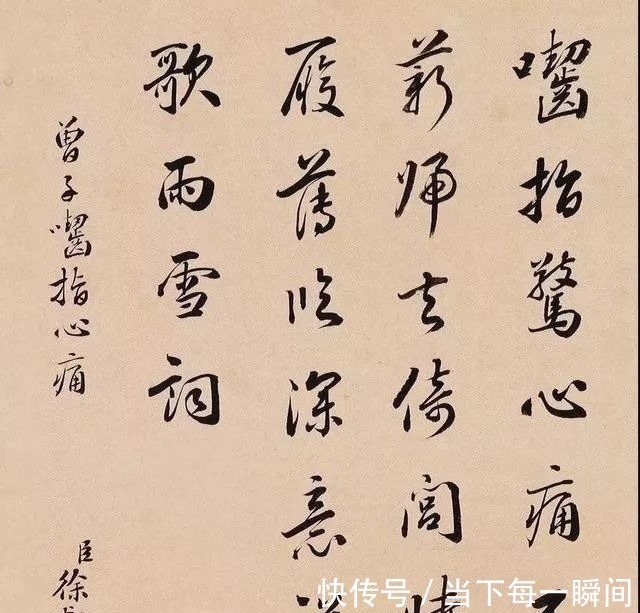 囓指驚心痛
薪歸去倚閭
履薄臨深意
歌雨雪詞
曾子囓指心痛
臣徐
快传号/当下每一瞬间